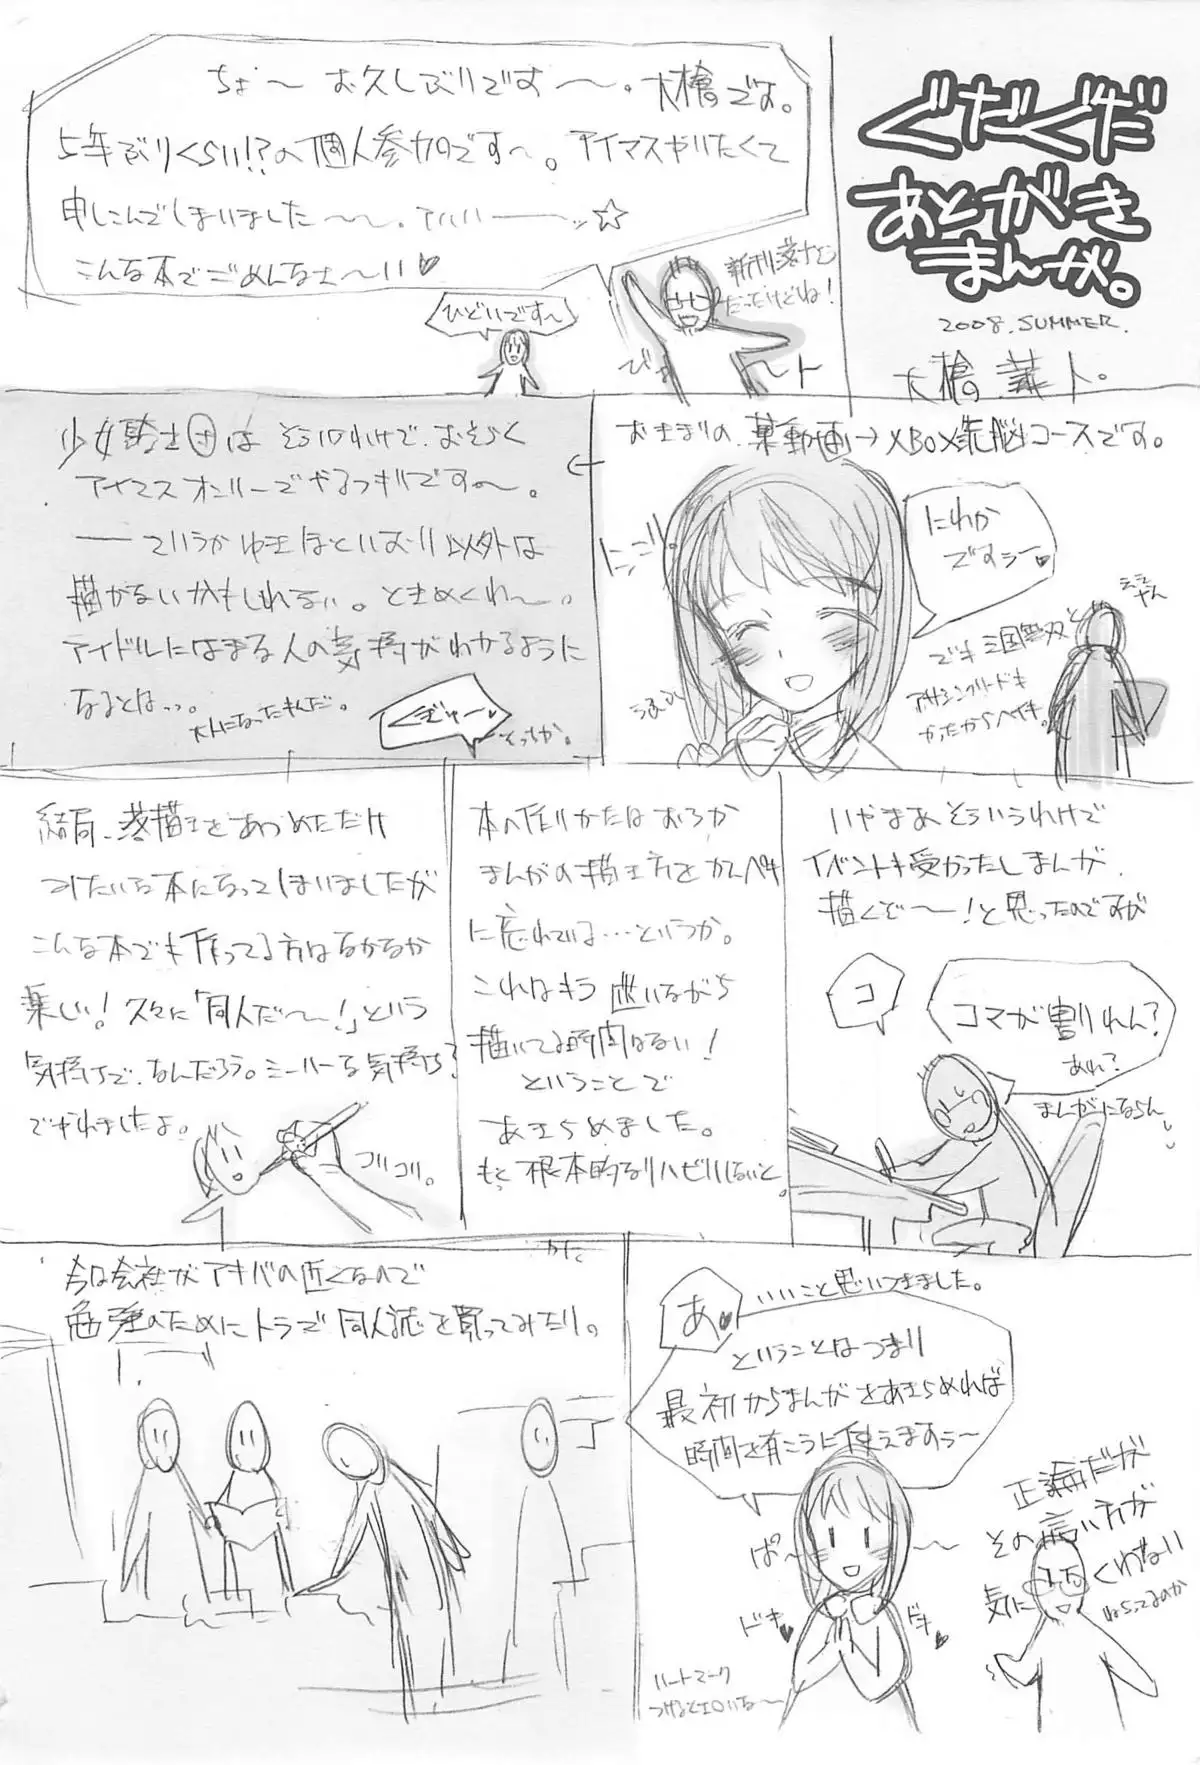 ぐだぐだ
あとがき
まんが。
2008.SUMMER.
ちょ〜お久しぶりです〜。大槍です。
5年ぶりくらい!?の個人参加です〜。アイマスやりたくて
申しこんでしまいました〜〜。アハハ――ッ☆
こんな本でごめんなさ〜いい♥
新刊落ナシ
だったけどね!
ひどいです〜
おきまりの、某動画→XBOX洗脳コースです。
にわか
ですぅー♥
ニコリ。
ええ
やん
でも三国無双と
アサシンクリードも
かったからヘイキ。
少女騎士団はそういうわけで、おそらく
アイマスオンリーでやるつもりです〜。
――ていうかゆきほといおり以外は
描かないかもしれない。ときめくれ〜。
アイドルにはまる人の気持がわかるように
なるとはっっ。
大人になったもんだ。
そっちか。
いやまあそういうわけで
イベントも受かったしまんが
描くぞ〜〜!と思ったのですが
コ
コマが割れん?
あれ?
まんがにならん
本の作りかたはおろか
まんがの描き方をカンペキ
に忘れている…というか。
これはもう迷いながら
描いてる時間はない!
ということで
あきらめました。
もっと根本的なリハビリしないと。
結局、落描きをあつめただけ
みたいな本になってしまいましたが
こんな本でも作ってる方はなかなか
楽しい!久々に「同人だ〜〜!」という
気持ちで、なんだろう。ミーハーな気持ち?
でやれましたよ。
コリコリ。
あ♥
いいこと思いつきました。
ということはつまり
最初からまんがをあきらめれば
時間を有こうに使えますぅ〜
ぱ〜
ドキ♥
ドキ♥
ハートマーク
つけるとエロいな〜
正論だが
その言い方が
気にくわない
ねらってるのか
今日会社がアキバの近くなので
勉強のためにトラで同人誌を買ってみたり。